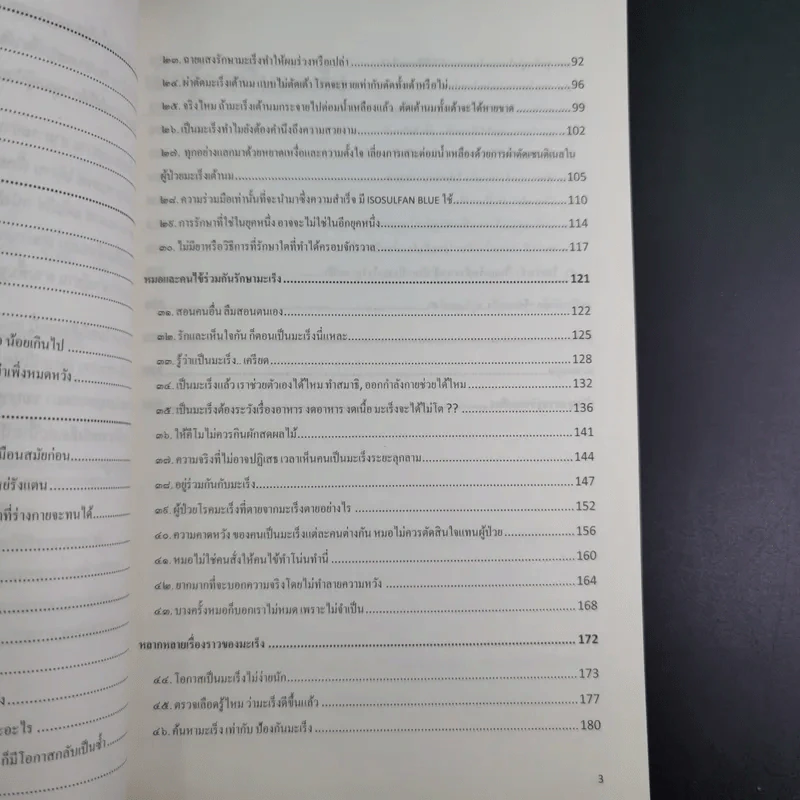 น้อยเกินไป
าเพิ่งหมดหวัง
มือนสมัยก่อน
ย์รังแตน
าที่ร่างกายจะทนได้
ะอะไร
ก็มีโอกาสกลับเป็นซ้ำ
๒๓. ฉายแสงรักษามะเร็งทำให้ผมร่วงหรือเปล่า 92
๒๔. ผ่าตัดมะเร็งเต้านม แบบไม่ตัดเต้า โรคจะหายเท่ากับตัดทั้งเต้าหรือไม่ 96
๒๕. จริงไหม ถ้ามะเร็งเต้านมกระจายไปต่อมน้ำเหลืองแล้ว ตัดเต้านมทั้งเต้าจะได้หายขาด 99
๒๖. เป็นมะเร็งทำไมยังต้องคำนึงถึงความสวยงาม 102
๒๗. ทุกอย่างแลกมาด้วยหยาดเหงื่อและความตั้งใจ เลี่ยงการเลาะต่อมน้ำเหลืองด้วยการผ่าตัดเซนติเนลใน
ผู้ป่วยมะเร็งเต้านม 105
๒๘. ความร่วมมือเท่านั้นที่จะนำมาซึ่งความสำเร็จ มี ISOSULFAN BLUE ใช้ 110
๒๙. การรักษาที่ใช่ในยุคหนึ่ง อาจจะไม่ใช่ในอีกยุคหนึ่ง 114
๓๐. ไม่มียาหรือวิธีการที่รักษาใดที่ทำได้ครอบจักรวาล 117
หมอและคนไข้ร่วมกันรักษามะเร็ง 121
๓๑. สอนคนอื่น ลืมสอนตนเอง 122
๓๒. รักและเห็นใจกัน ก็ตอนเป็นมะเร็งนี่แหละ 125
๓๓. รู้ว่าเป็นมะเร็ง.. เครียด 128
๓๔. เป็นมะเร็งแล้ว เราช่วยตัวเองได้ไหม ทำสมาธิ, ออกกำลังกายช่วยได้ไหม 132
๓๕. เป็นมะเร็งต้องระวังเรื่องอาหาร งดอาหาร งดเนื้อ มะเร็งจะได้ไม่โต ?? 136
๓๖. ให้คีโมไม่ควรกินผักสดผลไม้ 141
๓๗. ความจริงที่ไม่อาจปฏิเสธ เวลาเห็นคนเป็นมะเร็งระยะลุกลาม 144
๓๘. อยู่ร่วมกันกับมะเร็ง 147
๓๙. ผู้ป่วยโรคมะเร็งที่ตายจากมะเร็งตายอย่างไร 152
๔๐. ความคาดหวัง ของคนเป็นมะเร็งแต่ละคนต่างกัน หมอไม่ควรตัดสินใจแทนผู้ป่วย 156
๔๑. หมอไม่ใช่คนสั่งให้คนไข้ทำโน่นทำนี่ 160
๔๒. ยากมากที่จะบอกความจริงโดยไม่ทำลายความหวัง 164
๔๓. บางครั้งหมอก็บอกเราไม่หมด เพราะไม่จำเป็น 168
หลากหลายเรื่องราวของมะเร็ง 172
๔๔. โอกาสเป็นมะเร็งไม่ง่ายนัก 173
๔๕. ตรวจเลือดรู้ไหม ว่ามะเร็งดีขึ้นแล้ว 177
๔๖. ค้นหามะเร็ง เท่ากับ ป้องกันมะเร็ง 180
3